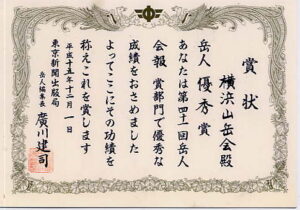 賞状
横浜山岳会殿
岳人 優秀賞
あなたは第四十一回岳人
会報 賞部門で優秀な
成績をおさめました
よってここにその功績を
称えこれを賞します
平成十五年十二月 一日
東京新聞出版局
岳人編集長 廣川建司